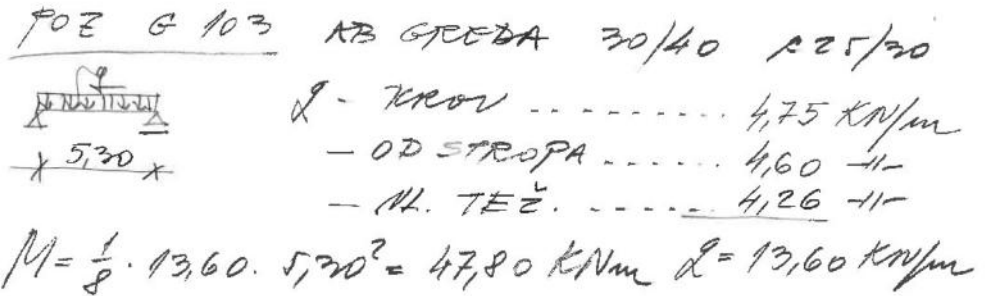 POZ G 103 AB GREDA 30/40 C25/30
q - KROV ........ 4,75 KN/m
q
5,30 - OD STROPA ...... 4,60 -II-
- VL. TEŽ. ...... 4,26 -II-
M = 1/8 · 13,60 · 5,30² = 47,80 KNm q = 13,60 KN/m